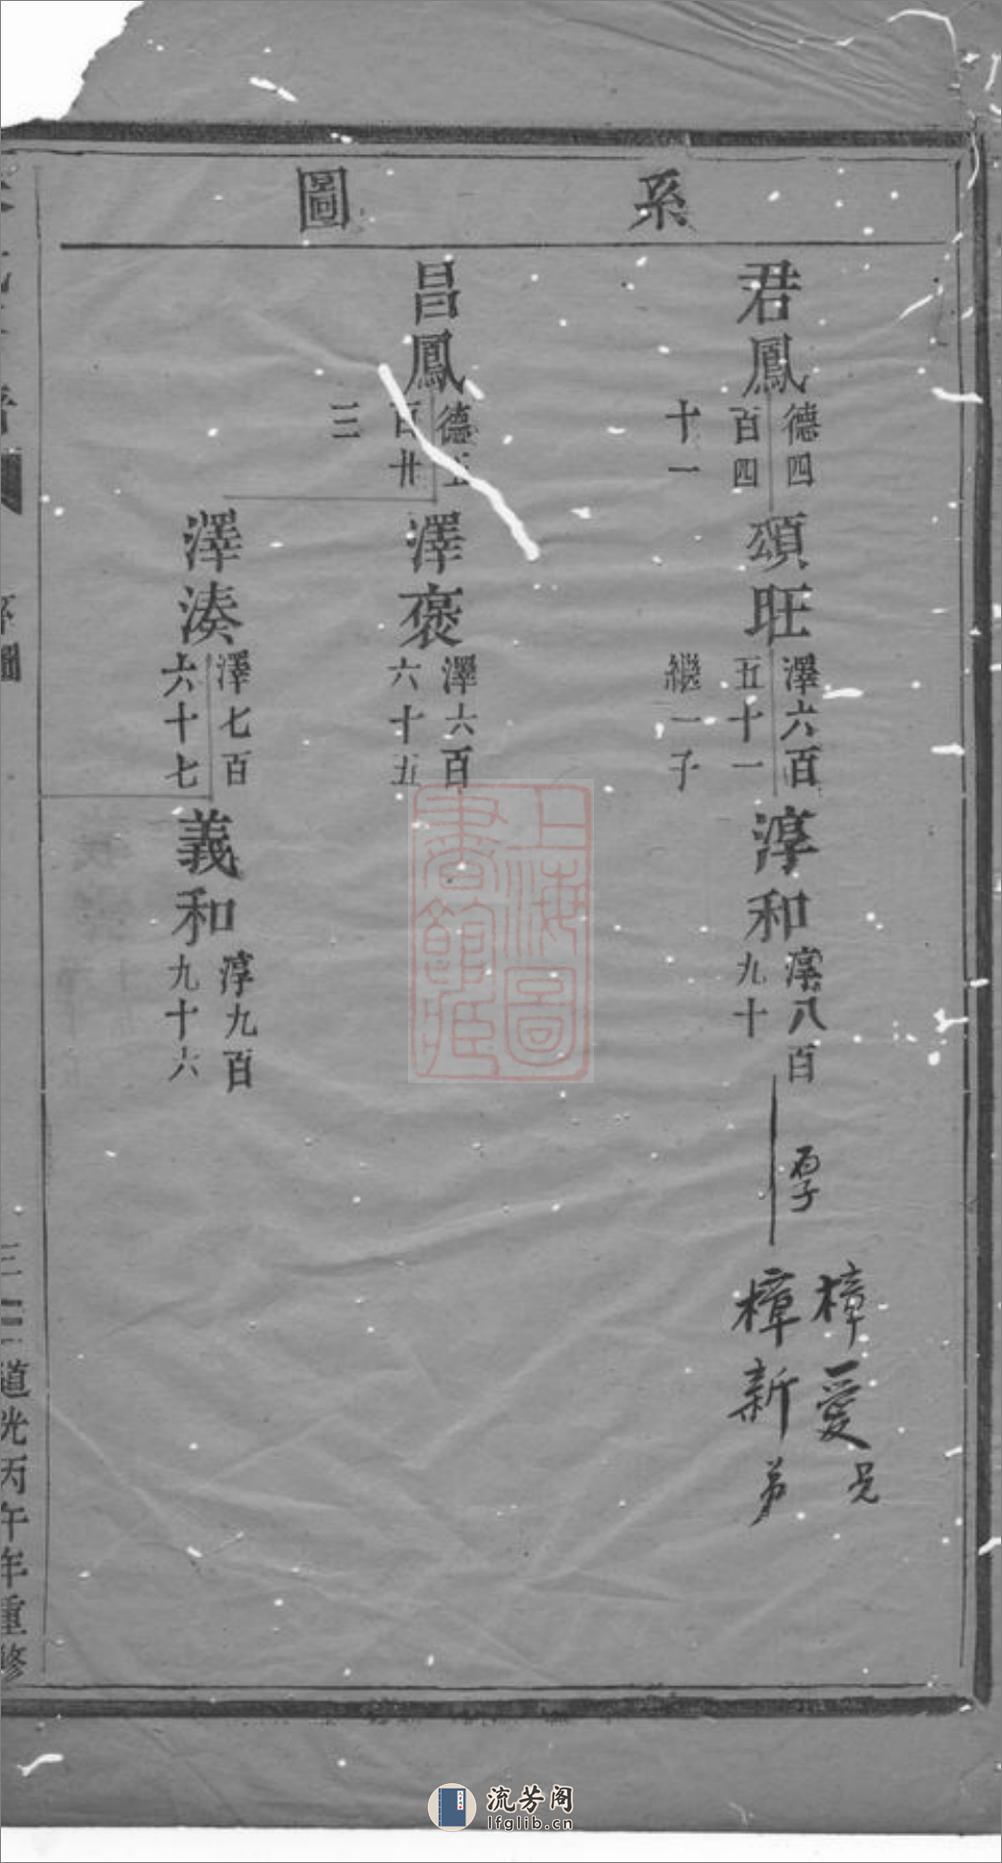 系圖
君鳳
德四
百四
十一
頌旺
澤六百
五十一
繼一子
淳和
淳八百
九十
厚
樟愛兄
樟新弟
昌鳳
德五
百卅
三
澤褒
澤六百
六十五
澤湊
澤七百
六十七
義和
淳九百
九十六
系圖
道光丙午年重修
上海圖
書館藏
流芳阁
lfglib.cn